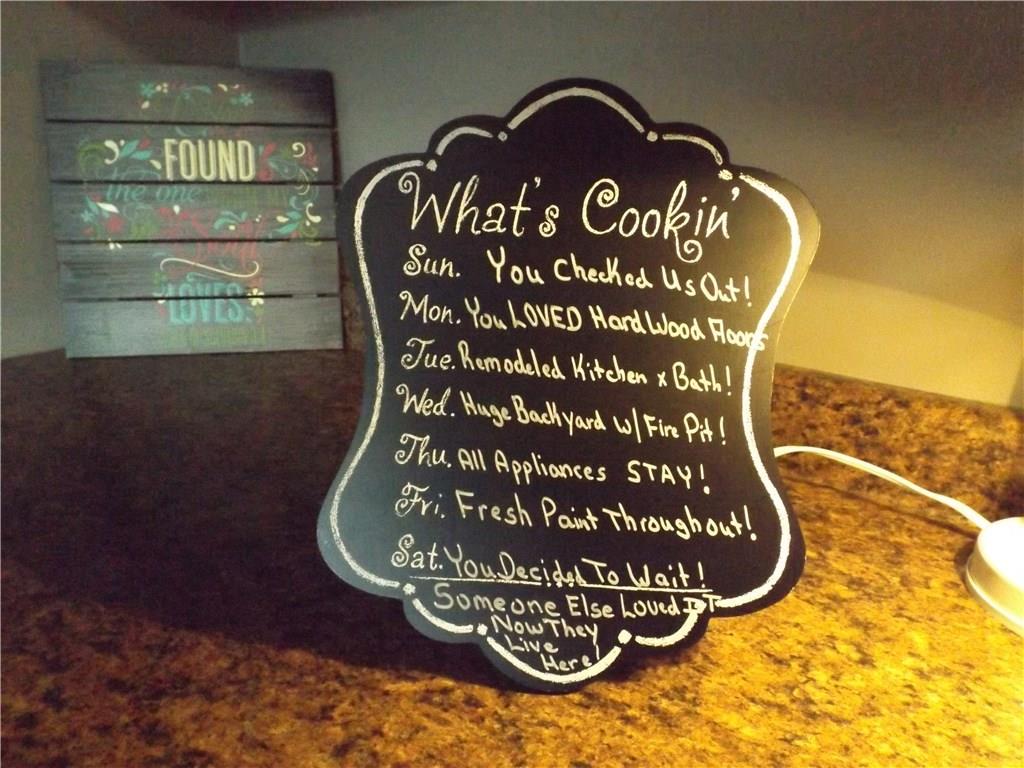 FOUND
the one
Soul
LOVES
What's Cookin'
Sun. You Checked Us Out!
Mon. You LOVED HardWood Floors
Tue. Remodeled Kitchen x Bath!
Wed. Huge Backyard w/ Fire Pit!
Thu. All Appliances STAY!
Fri. Fresh Paint Throughout!
Sat. You Decided To Wait!
Someone Else Loved IT
Now They
Live
Here!